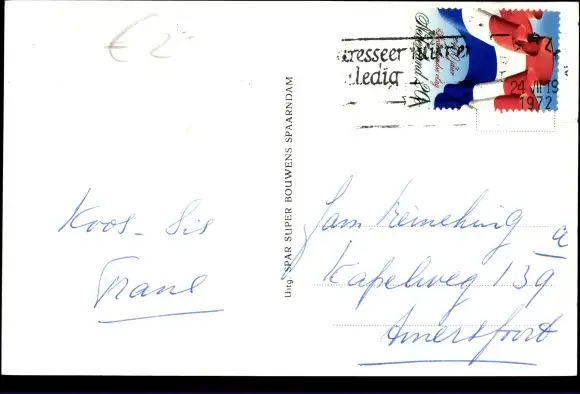 € 2
Adresseer
volledig
Nederland
24 VII 18
1972
Uitg. SPAR SUPER BOUWENS SPAARNDAM
Koos - Sis
Frans
Fam
Kapelweg 139 a
Amersfoort